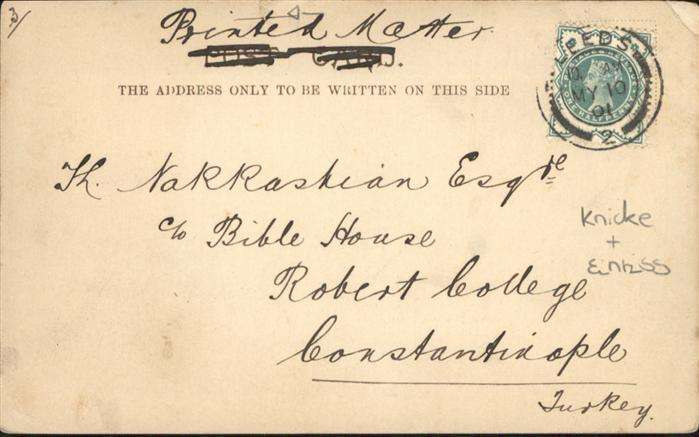 3/
Printed Matter
POST CARD.
THE ADDRESS ONLY TO BE WRITTEN ON THIS SIDE
LEEDS
MY 10
01
2
Th. Nakkashian Esqre
c/o Bible House
Robert College
Constantinople
Turkey.
Knicke
+
Einriss